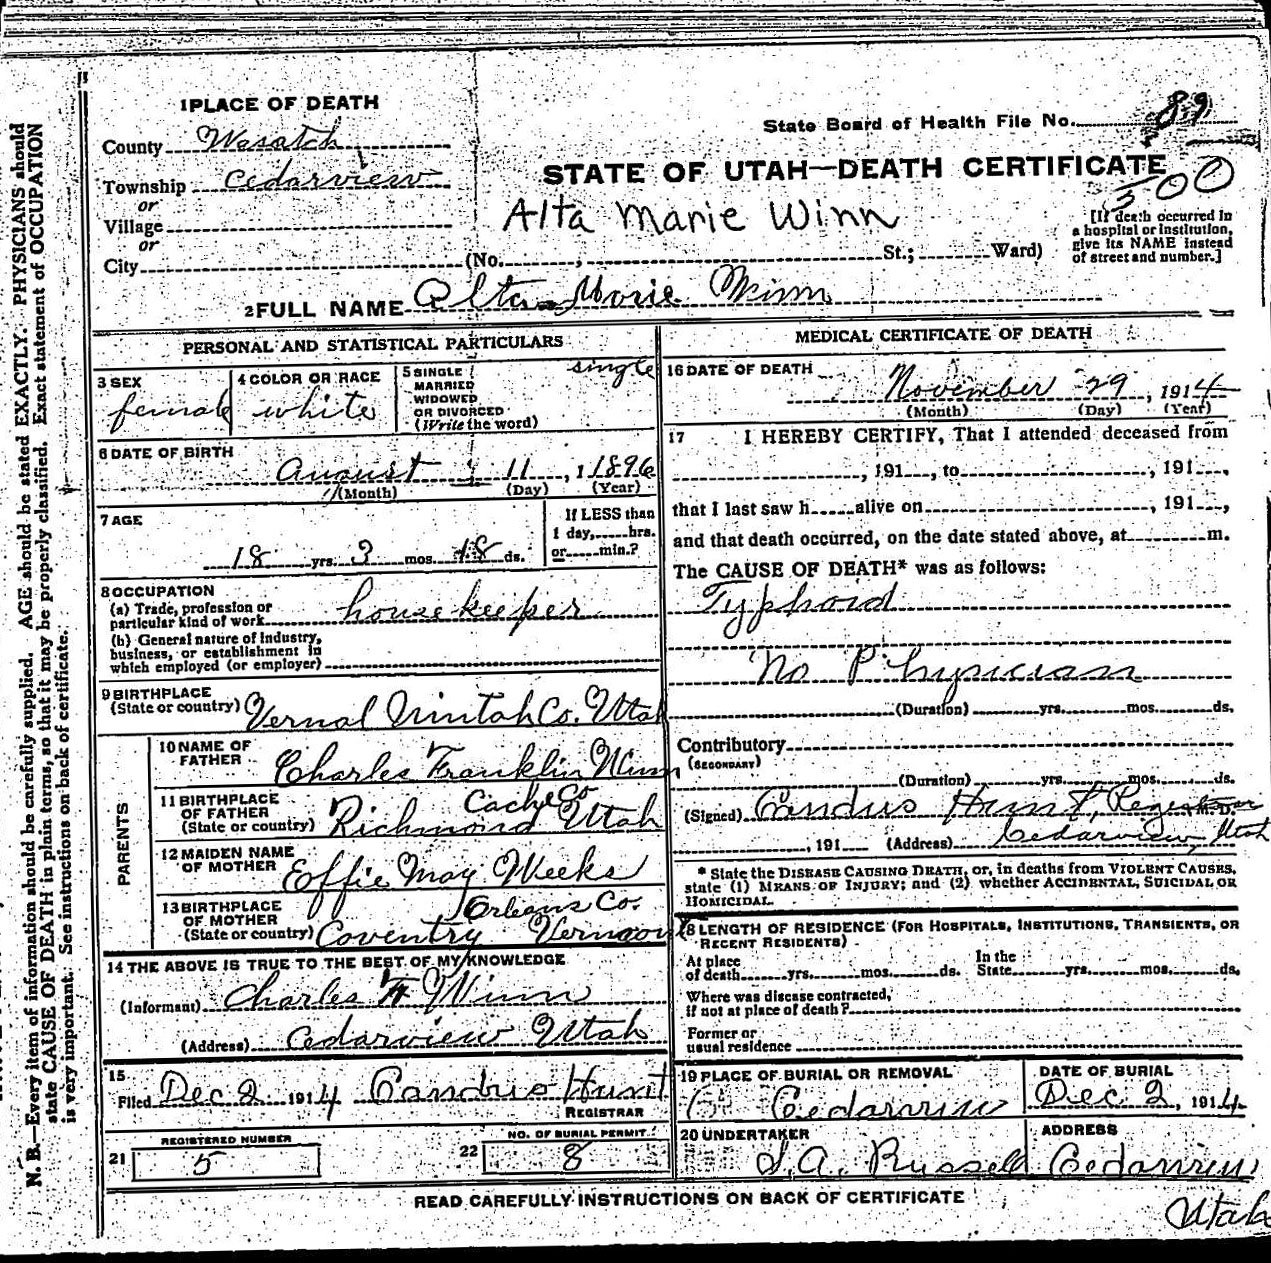 1 PLACE OF DEATH
County Wasatch
Township Cedarview
or
Village
or
City
State Board of Health File No. 89
STATE OF UTAH—DEATH CERTIFICATE
500
Alta Marie Winn
[If death occurred in
a hospital or institution,
give its NAME instead
of street and number.]
(No. , St.; Ward)
2 FULL NAME Alta Marie Winn
PERSONAL AND STATISTICAL PARTICULARS
3 SEX
female
4 COLOR OR RACE
white
5 SINGLE
MARRIED
WIDOWED
OR DIVORCED
(Write the word)
single
6 DATE OF BIRTH
August 11, 1 1896
(Month) (Day) (Year)
7 AGE
18 yrs. 3 mos. 18 ds.
If LESS than
1 day, hrs.
or min.?
8 OCCUPATION
(a) Trade, profession or
particular kind of work housekeeper
(b) General nature of industry,
business, or establishment in
which employed (or employer)
9 BIRTHPLACE
(State or country) Vernal Uintah Co. Utah
PARENTS
10 NAME OF
FATHER Charles Franklin Winn
11 BIRTHPLACE
OF FATHER
(State or country) Richmond Cache Co Utah
12 MAIDEN NAME
OF MOTHER Effie May Weeks
13 BIRTHPLACE
OF MOTHER
(State or country) Coventry Orleans Co. Vermont
14 THE ABOVE IS TRUE TO THE BEST OF MY KNOWLEDGE
(Informant) Charles F Winn
(Address) Cedarview Utah
15
Filed Dec 2 1914 Candus Hunt
REGISTRAR
REGISTERED NUMBER
21 5
NO. OF BURIAL PERMIT
22 8
MEDICAL CERTIFICATE OF DEATH
16 DATE OF DEATH
November 29, 1914
(Month) (Day) (Year)
17 I HEREBY CERTIFY, That I attended deceased from
, 191 , to , 191 ,
that I last saw h alive on , 191 ,
and that death occurred, on the date stated above, at m.
The CAUSE OF DEATH* was as follows:
Typhoid
No Physician
(Duration) yrs. mos. ds.
Contributory
(SECONDARY)
(Duration) yrs. mos. ds.
(Signed) Candus Hunt, Regestrar M. D.
, 191 (Address) Cedarview, Utah
* State the DISEASE CAUSING DEATH, or, in deaths from VIOLENT CAUSES,
state (1) MEANS OF INJURY; and (2) whether ACCIDENTAL, SUICIDAL OR
HOMICIDAL.
18 LENGTH OF RESIDENCE (FOR HOSPITALS, INSTITUTIONS, TRANSIENTS, OR
RECENT RESIDENTS)
At place
of death yrs. mos. ds.
In the
State yrs. mos. ds.
Where was disease contracted,
if not at place of death?
Former or
usual residence
19 PLACE OF BURIAL OR REMOVAL
Cedarview
DATE OF BURIAL
Dec 2, 1914
20 UNDERTAKER
ADDRESS
Russell Cedarview
Utah
READ CAREFULLY INSTRUCTIONS ON BACK OF CERTIFICATE
N. B.—Every item of information should be carefully supplied. AGE should be stated EXACTLY. PHYSICIANS should
state CAUSE OF DEATH in plain terms, so that it may be properly classified. Exact statement of OCCUPATION
is very important. See instructions on back of certificate.